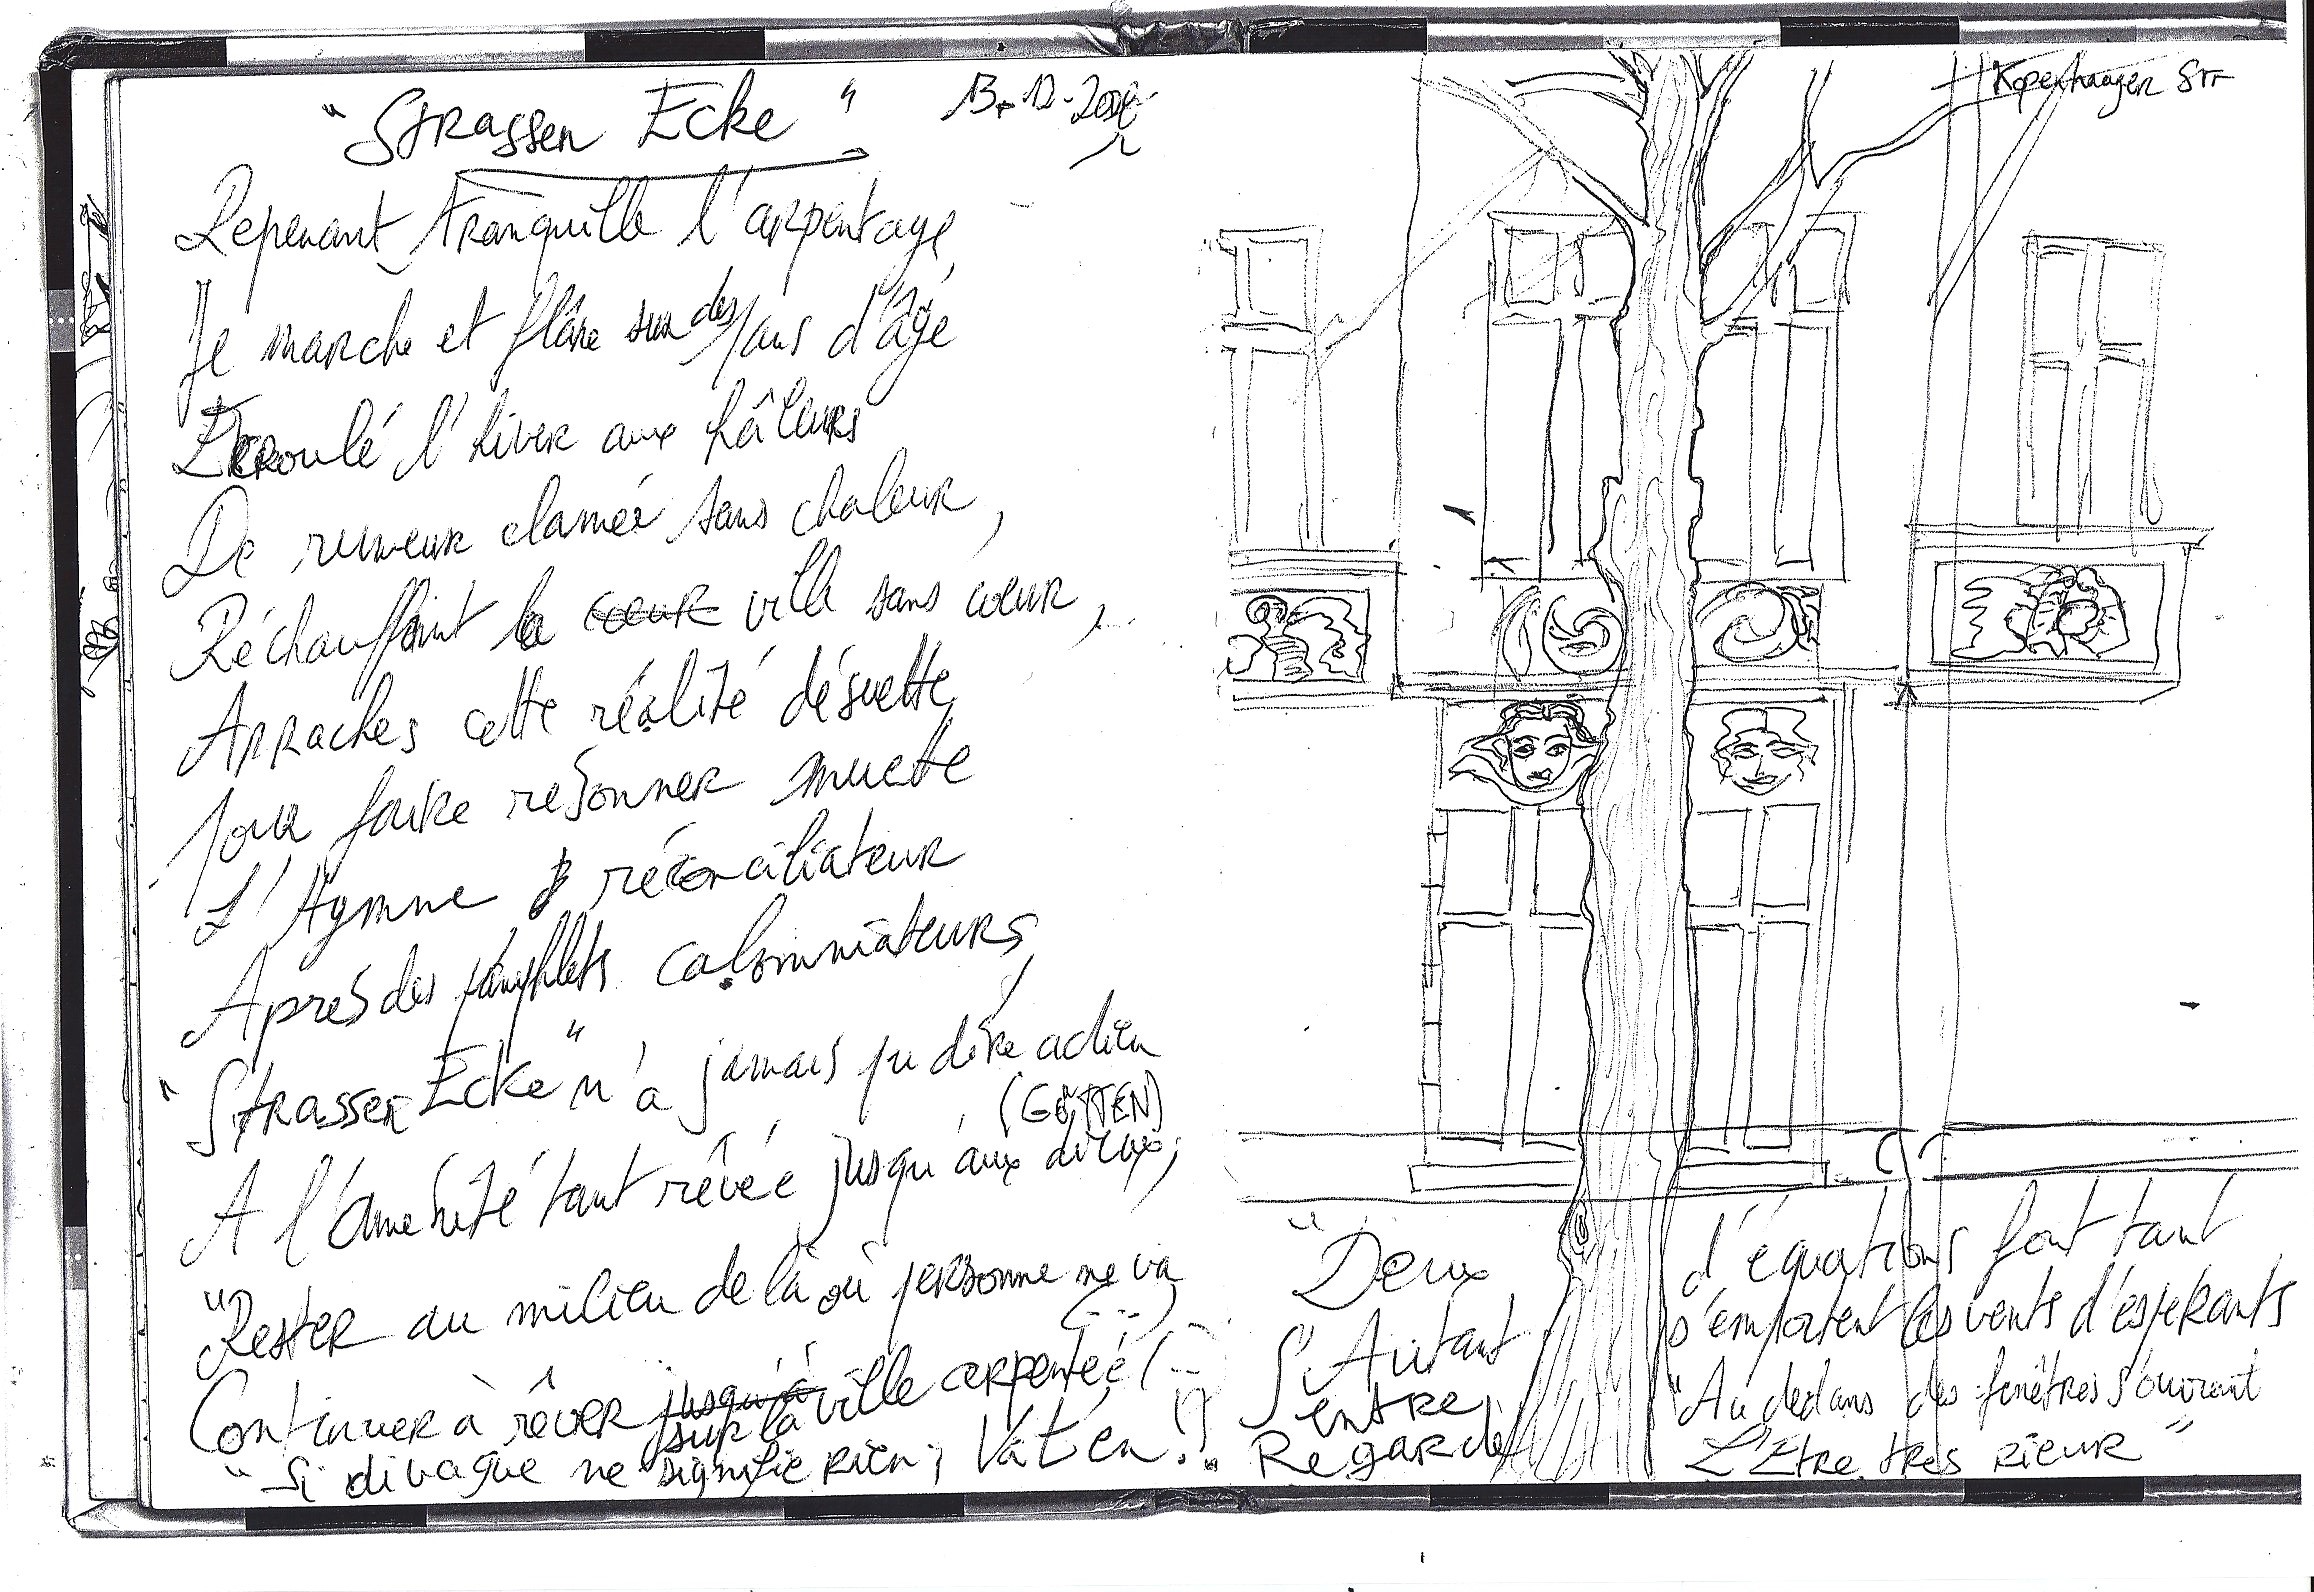 "Strassen Ecke"
13-12-200
Kopenhagen Str
Repenant tranquille l'arpentage
Je marche et flâne sur des pans d'âge
Ecroulé l'hiver aux hâleurs
De rumeur clamée sans chaleur,
Réchauffant la coeur ville sans coeur,
Arraches cette réalité désuette
Pour faire resonner muette
L'Hymne réconciliateur
Après des pamphlets calomniateurs,
"Strassen Ecke" n'a jamais pu dire adieu
(GÖTTEN)
A l'aménité tant rêvée jusqu'aux dieux,
"Rester au milieu de là où personne ne va
Continuer à rêver jusqu'à sur la ville arpentée
"Si divague ne signifie rien, Vat'en !?"
"Deux d'équations font tant
S'Autant s'emportent les vents d'espérants
entre "Au dedans des fenêtres s'ouvrant
Regarde L'Etre très rieur"